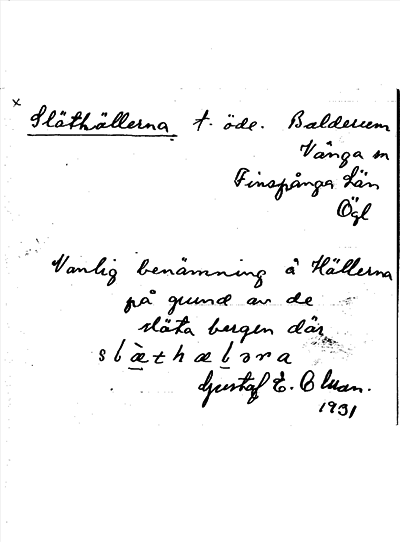 x
Släthällerna t. öde. Balderum
Vånga sn
Finspånga län
Ögl
Vanlig benämning å Hällerna
på grund av de
släta bergen där
slæthæləra
Gustaf E.
1931